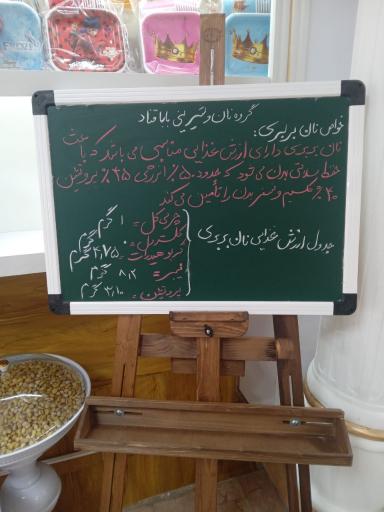 گروه نان و شیرینی باباقناد
خواص نان بربری:
نان بربری دارای ارزش غذایی مناسبی می باشد که باعث
حفظ سلامتی بدن می شود که حدود ۵۰٪ انرژی ۴۵٪ پروتئین
۴۰٪ کلسیم و بدن را تأمین می کند
جدول ارزش غذایی نان بربری
چربی کل = ۱ گرم
کلسترول = ۰ گرم
کربوهیدرات = ۴,۷۵ گرم
فیبر = ۸,۲ گرم
پروتئین = ۳,۱۰ گرم